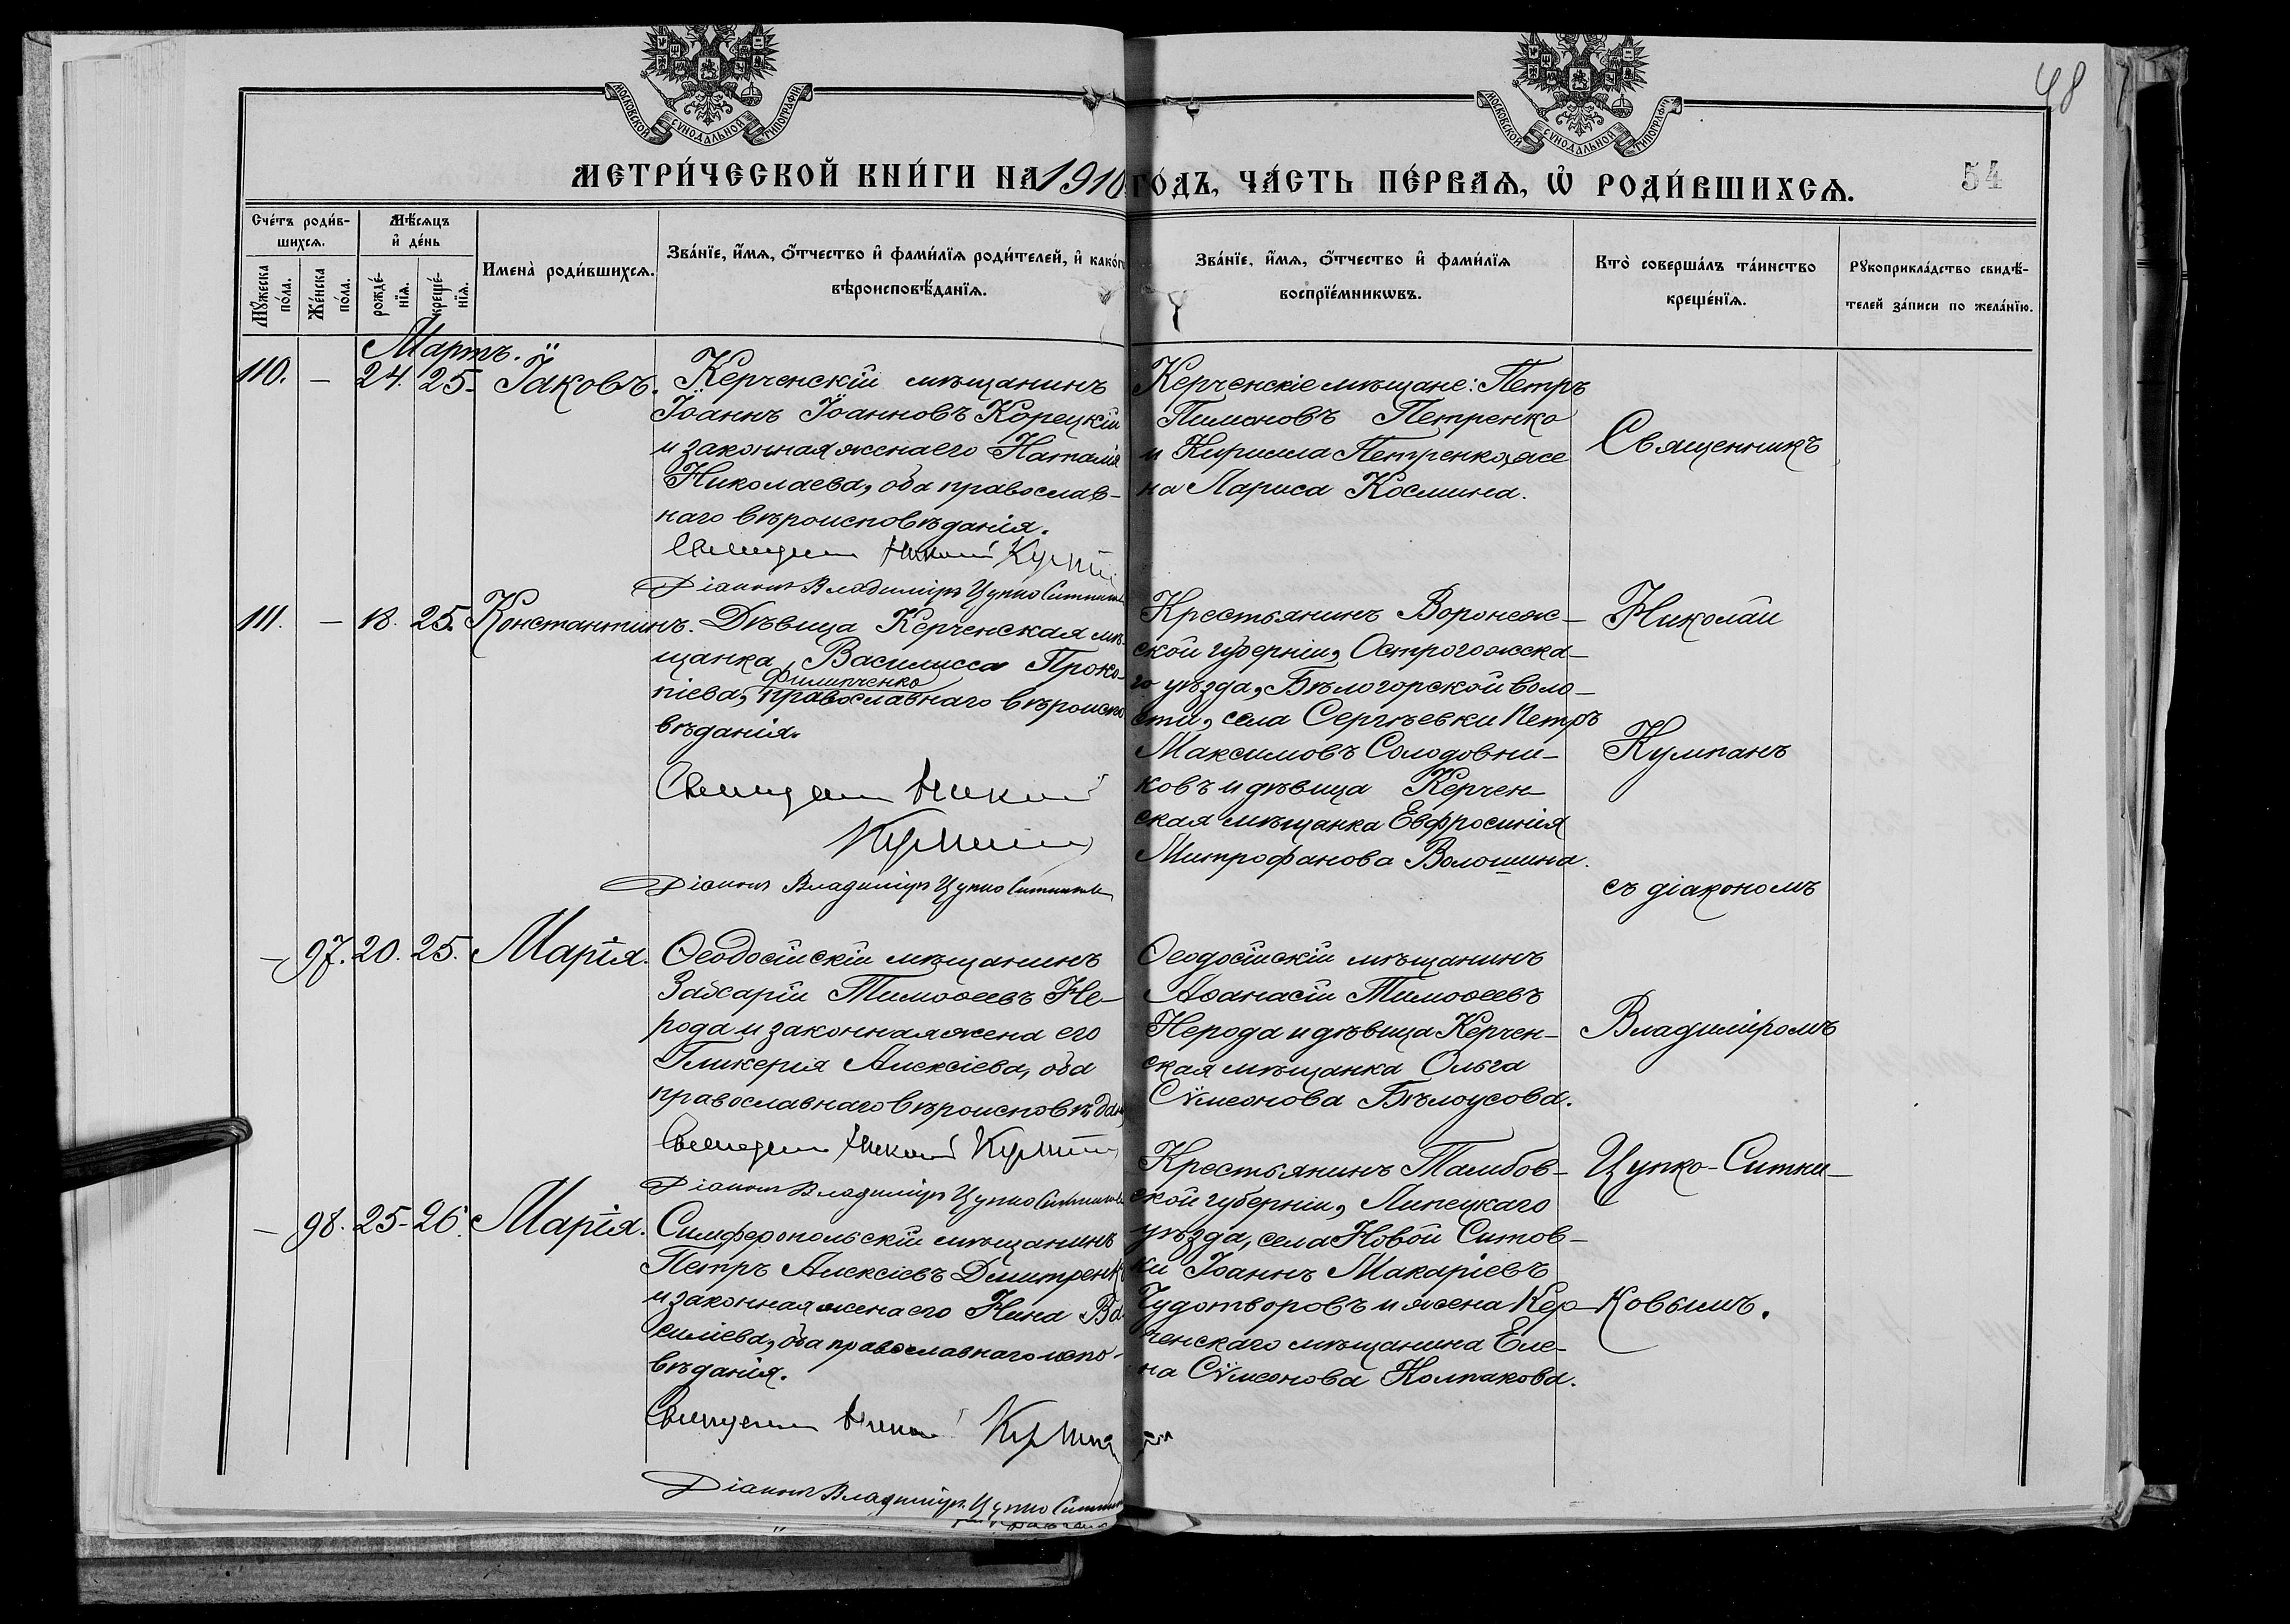 МОСКОВСКОЙ СУНОДАЛЬНОЙ ТИПОГРАФІИ
МОСКОВСКОЙ СУНОДАЛЬНОЙ ТИПОГРАФІИ
48
МЕТРИ́ЧЕСКОЙ КНИ́ГИ НА 1910 ГО́ДЪ, ЧА́СТЬ ПЕ́РВАѦ, Ѡ҆ РОДИ́ВШИХСѦ.
54
Сче́тъ роди́в-
шихсѧ.
Мѣ́сѧцъ
и҆ де́нь
Мꙋ́жеска
по́ла.
Же́нска
по́ла.
рожде́-
нїѧ.
креще́-
нїѧ.
Имена̀ роди́вшихсѧ.
Зва́нїе, и҆́мѧ, ѻ҆́тчество и҆ фами́лїѧ роди́телей, и҆ како́гѡ
вѣроисповѣ́данїѧ.
Зва́нїе, и҆́мѧ, ѻ҆́тчество и҆ фами́лїѧ
воспрїе́мникѡвъ.
Кто̀ соверша́лъ та́инство
креще́нїѧ.
Рꙋкоприкла́дство свидѣ́-
телей за́писи по жела́нїю.
Мартъ.
110. – 24. 25. Іаковъ.
Керченскій мѣщанинъ
Іоаннъ Іоанновъ Корецкій
и законная жена его Наталія
Николаева, оба православ-
наго вѣроисповѣданія.
Священникъ Николай Кумпанъ
Діаконъ Владиміръ Цупко Ситниковъ
Керченскіе мѣщане: Петръ
Пимоновъ Петренко
и Кирилла Петренко же
на Лариса Космина.
Священникъ
111. – 18. 25. Константинъ.
Дѣвица Керченская мѣ-
щанка, Василисса Проко-
Филипченко
піева, православнаго вѣроиспо
вѣданія.
Священникъ Николай
Кумпанъ
Діаконъ Владиміръ Цупко Ситниковъ
Крестьянинъ Воронеж-
ской губерніи, Острогожска-
го уѣзда, Бѣлогорской воло-
сти, села Сергѣевки Петръ
Максимовъ Солодовни-
ковъ и дѣвица Керчен-
ская мѣщанка Евфросинія
Митрофанова Волошина.
Николай
Кумпанъ
съ діакономъ
– 97. 20. 25. Марія.
Ѳеодосійскій мѣщанинъ
Захарій Тимоѳеевъ Не-
рода и законная жена его
Гликерія Алексіева, оба
православнаго вѣроисповѣдан
Священникъ Николай Кумпанъ
Діаконъ Владиміръ Цупко Ситниковъ
Ѳеодосійскій мѣщанинъ
Аѳанасій Тимоѳеевъ
Нерода и дѣвица Керчен-
ская мѣщанка Ольга
Сѵмеонова Бѣлоусова.
Владиміромъ
– 98. 25. 26. Марія.
Симферопольскій мѣщанинъ
Петръ Алексіевъ Дмитренко
и законная жена его Нина Ва-
силіева, оба православнаго испо-
вѣданія.
Священникъ Николай Кумпанъ
Діаконъ Владиміръ Цупко Ситниковъ
Крестьянинъ Тамбов-
ской губерніи, Липецкаго
уѣзда, села Новой Ситов-
ки Іоаннъ Макаріевъ
Чудотворовъ и жена Кер-
ченскаго мѣщанина Еле-
на Сѵмеонова Колпакова.
Цупко-Ситни-
ковымъ.